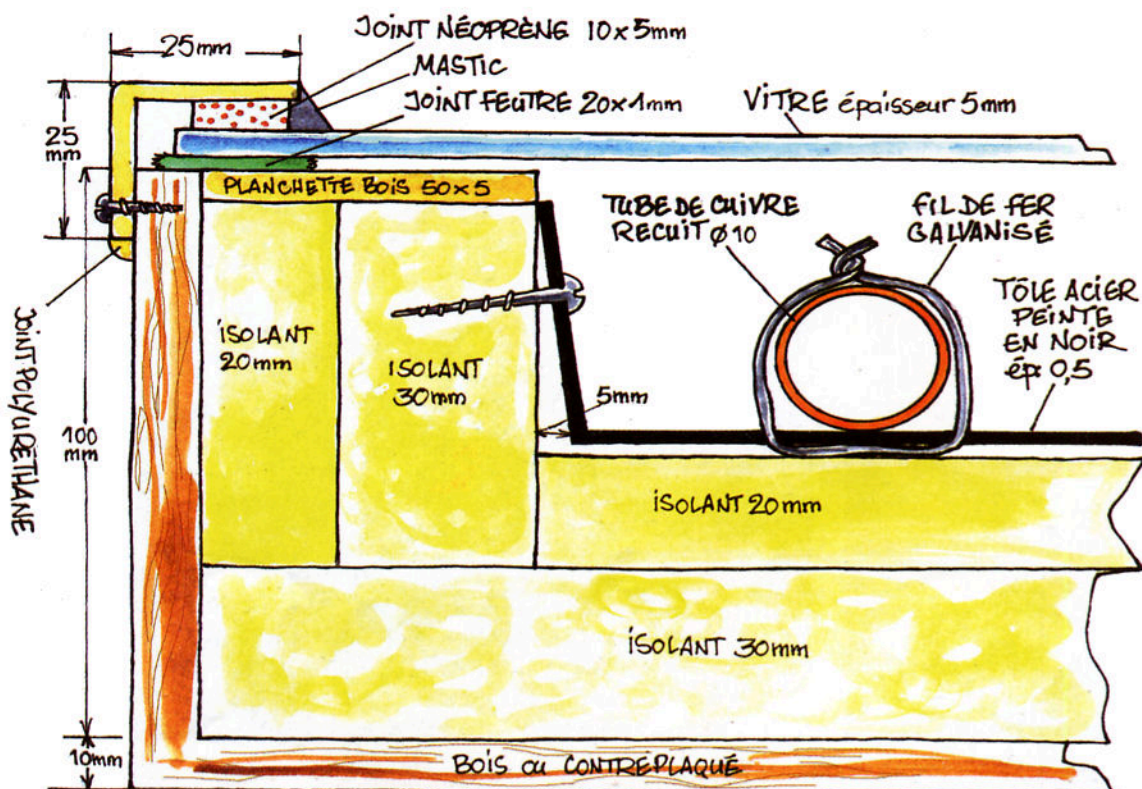 JOINT NÉOPRÈNE 10x5mm
25mm
MASTIC
JOINT FEUTRE 20x1mm
VITRE épaisseur 5mm
25
mm
PLANCHETTE BOIS 50x5
TUBE DE CUIVRE
RECUIT Ø10
FIL DE FER
GALVANISÉ
TÔLE ACIER
PEINTE
EN NOIR
ép: 0,5
ISOLANT
20mm
ISOLANT
30mm
5mm
JOINT POLYURÉTHANE
100
mm
ISOLANT 20mm
ISOLANT 30mm
10mm
BOIS ou CONTREPLAQUÉ